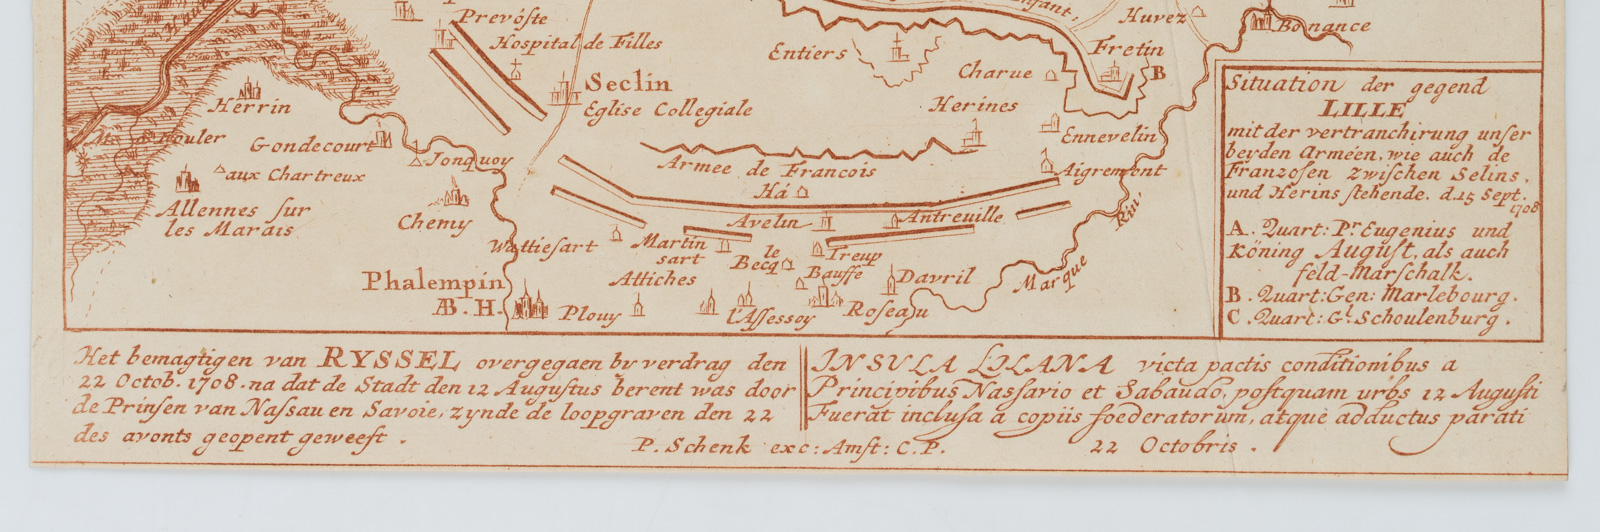 Enfant.
Prevôste
Huvez
Bonance
Hospital de Filles
Entiers
Fretin
B
Seclin
Charue
Eglise Collegiale
Herines
Herrin
Gondecourt
Ennevelin
Jonquoy
Armee de Francois
Aigremont
aux Chartreux
Há
Allennes sur
les Marais
Chemy
Avelin
Antreuille
Riu:
Wattiesart
Martin
sart
le
Becq
Treup
Bauffe
Attiches
Davril
Marque
Phalempin
Æ. H.
Plouy
l'Assessoy
Roseau
Situation der gegend
LILLE
mit der vertranchirung unser
beyden Arméen, wie auch de
Franzosen zwischen Selins,
und Herins stehende. d.15 Sept.
1708
A. Quart: Pr Eugenius und
Köning August, als auch
feld-Marschalk.
B. Quart: Gen: Marlebourg.
C. Quart: Gr Schoulenburg.
Het bemagtigen van RYSSEL overgegaen by verdrag den
22 Octob. 1708. na dat de Stadt den 12 Augustus berent was door
de Prinsen van Nassau en Savoie, zynde de loopgraven den 22
des avonts geopent geweest.
INSULA LILANA victa pactis conditionibus a
Principibus Nassavio et Sabaudo, postquam urbs 12 Augusti
Fuerat inclusa a copiis foederatorum, atque adductus parati
22 Octobris.
P. Schenk exc: Amst: C. P.